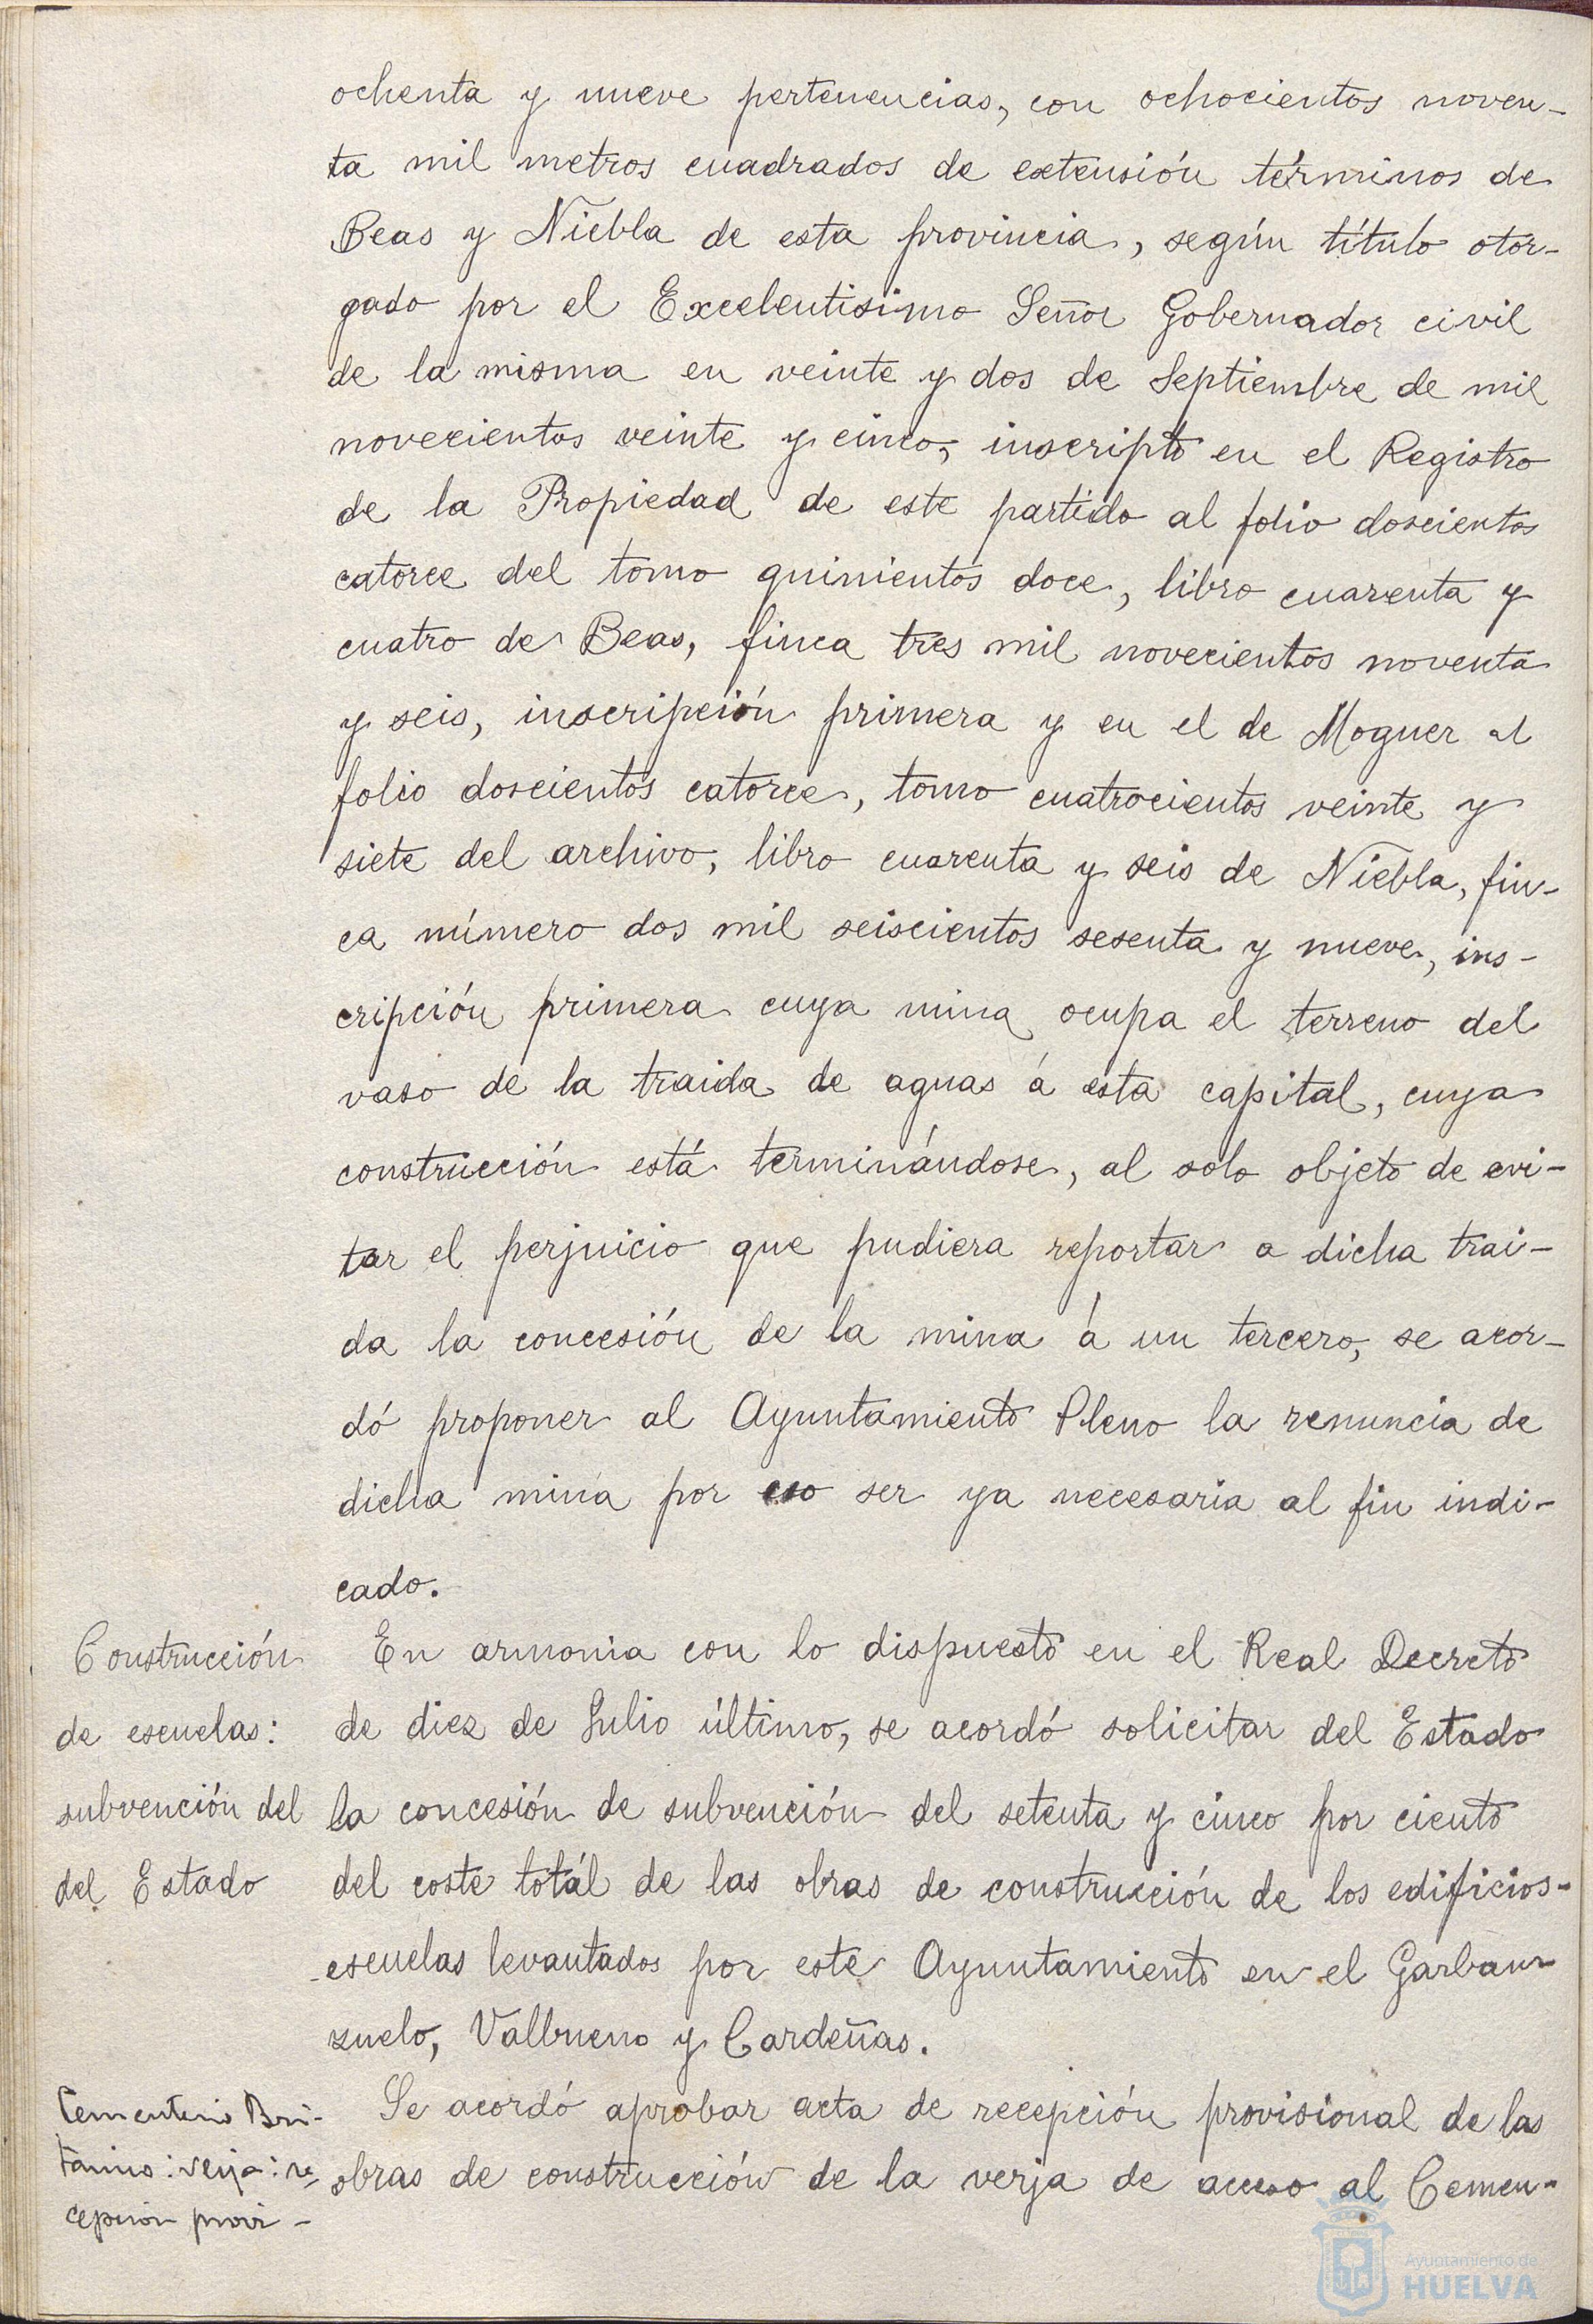 ochenta y nueve pertenencias, con ochocientos noven-
ta mil metros cuadrados de extensión términos de
Beas y Niebla de esta provincia, según título otor-
gado por el Excelentisimo Señor Gobernador civil
de la misma en veinte y dos de Septiembre de mil
novecientos veinte y cinco, inscripto en el Registro
de la Propiedad de este partido al folio doscientos
catorce del tomo quinientos doce, libro cuarenta y
cuatro de Beas, finca tres mil novecientos noventa
y seis, inscripción primera y en el de Moguer al
folio doscientos catorce, tomo cuatrocientos veinte y
siete del archivo, libro cuarenta y seis de Niebla, fin-
ca número dos mil seiscientos sesenta y nueve, ins-
cripción primera cuya mina ocupa el terreno del
vaso de la traida de aguas á esta capital, cuya
construcción está terminándose, al solo objeto de evi-
tar el perjuicio que pudiera reportar a dicha trai-
da la concesión de la mina á un tercero, se acor-
dó proponer al Ayuntamiento Pleno la renuncia de
dicha mina por eso ser ya necesaria al fin indi-
cado.
Construcción
de escuelas:
subvención del
del Estado
En armonia con lo dispuesto en el Real Decreto
de diez de Julio último, se acordó solicitar del Estado
la concesión de subvención del setenta y cinco por ciento
del coste totál de las obras de construcción de los edificios-
-escuelas levantados por este Ayuntamiento en el Garban-
zuelo, Vallbueno y Cardeñas.
Cementerio Bri-
tánico: verja: re-
cepción provi-
Se acordó aprobar acta de recepción provisional de las
obras de construcción de la verja de acceso al Cemen-
Ayuntamiento de
HUELVA